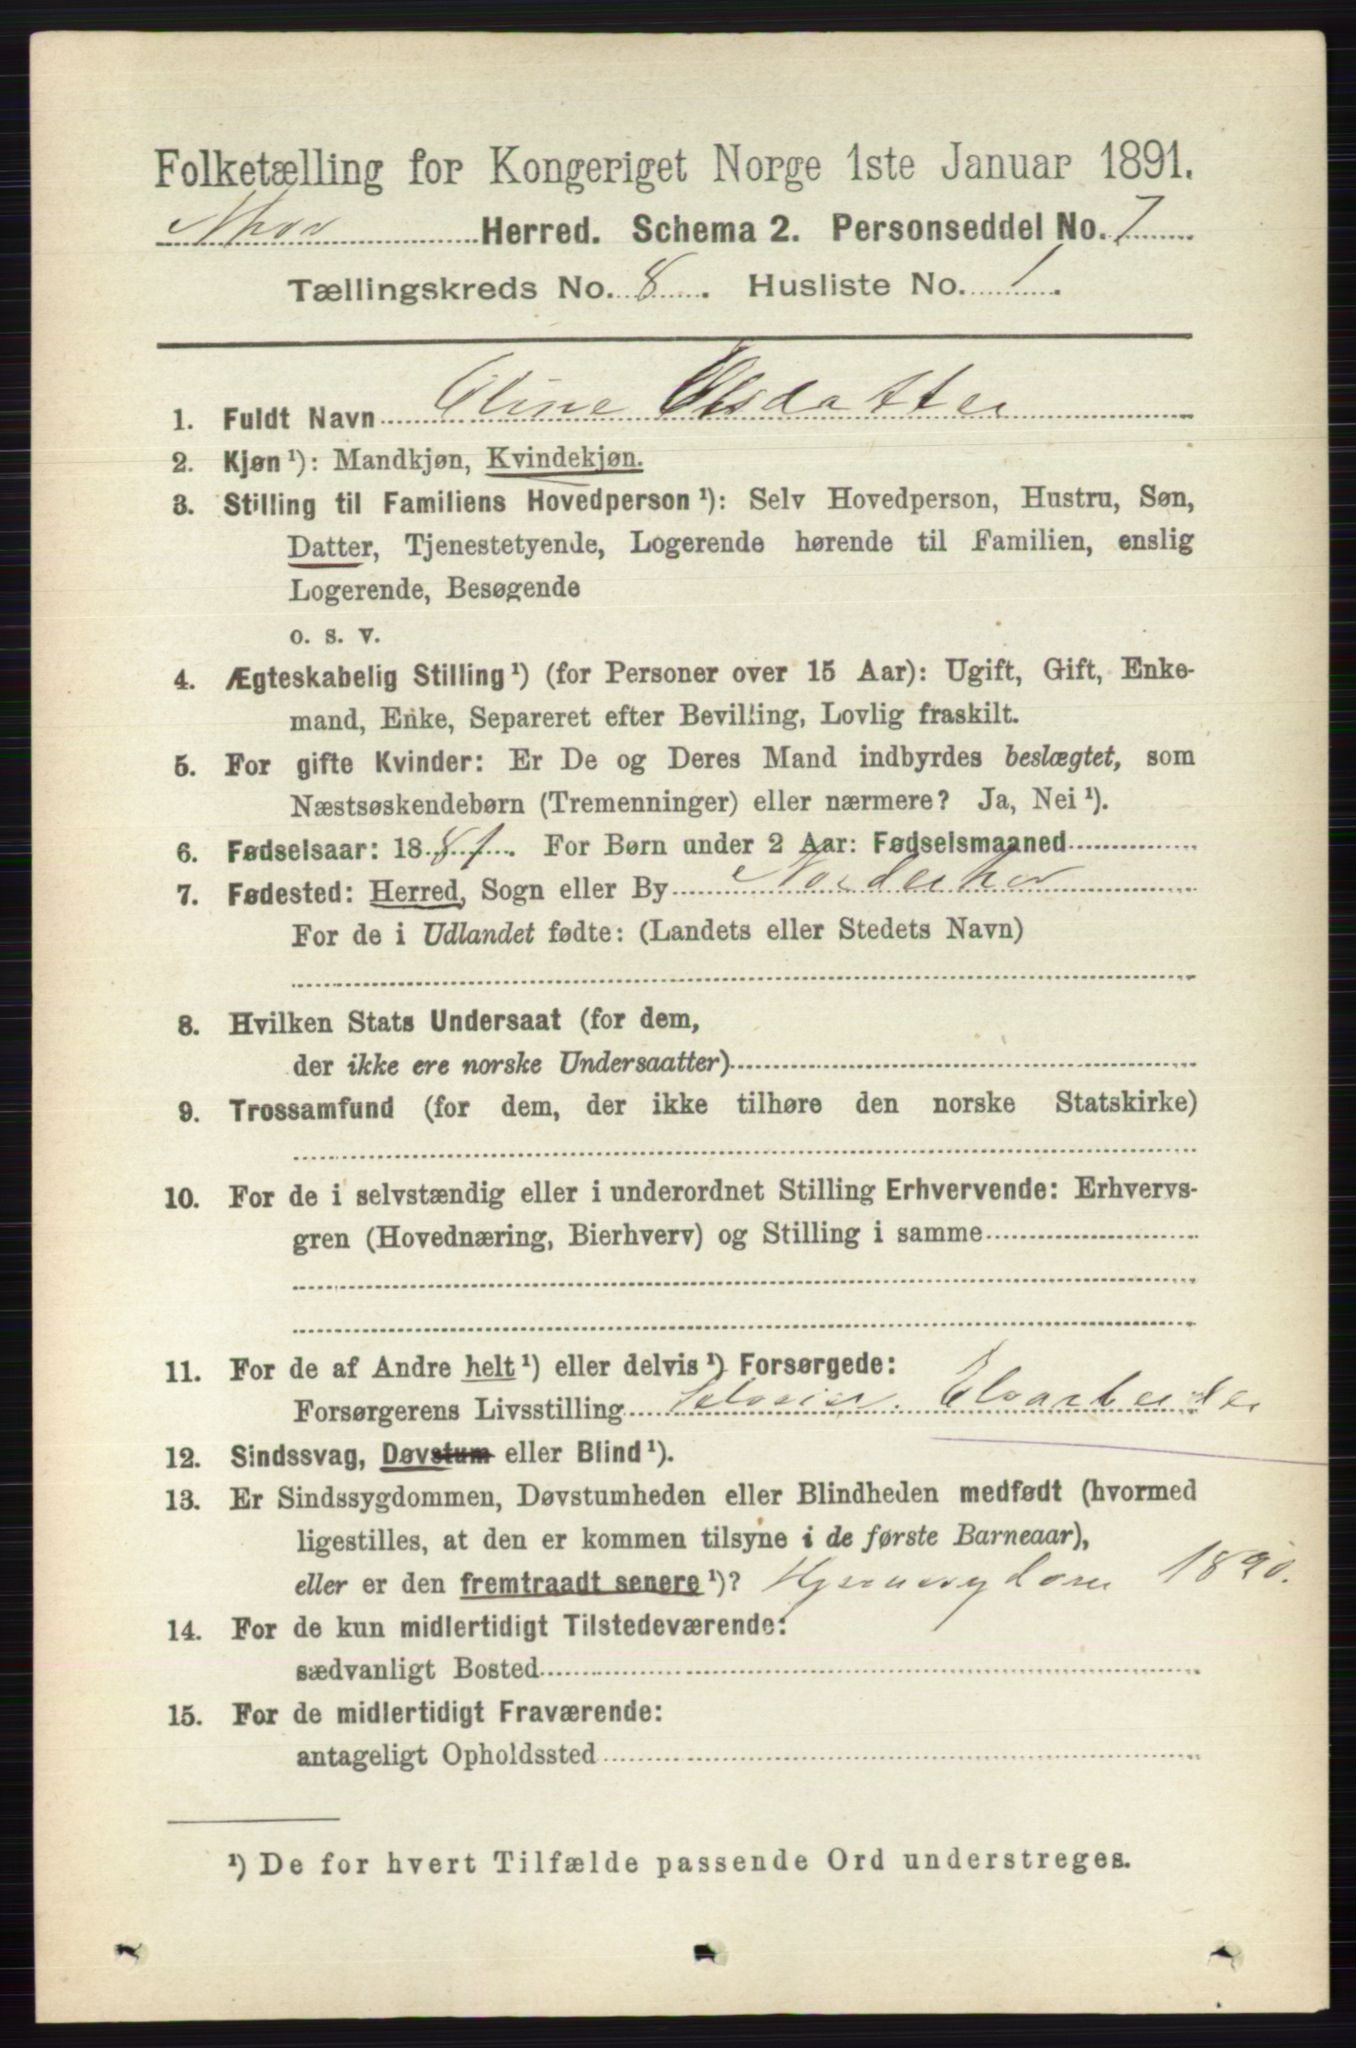 Folketælling for Kongeriget Norge 1ste Januar 1891.
Herred. Schema 2. Personseddel No. 7
Tællingskreds No. 8. Husliste No. 1.
1. Fuldt Navn Oline Olsdatter
2. Kjøn¹): Mandkjøn, Kvindekjøn.
3. Stilling til Familiens Hovedperson¹): Selv Hovedperson, Hustru, Søn,
Datter, Tjenestetyende, Logerende hørende til Familien, enslig
Logerende, Besøgende
o. s. v.
4. Ægteskabelig Stilling¹) (for Personer over 15 Aar): Ugift, Gift, Enke-
mand, Enke, Separeret efter Bevilling, Lovlig fraskilt.
5. For gifte Kvinder: Er De og Deres Mand indbyrdes beslægtet, som
Næstsøskendebørn (Tremenninger) eller nærmere? Ja, Nei¹).
6. Fødselsaar: 1881. For Børn under 2 Aar: Fødselsmaaned
7. Fødested: Herred, Sogn eller By Norderhov
For de i Udlandet fødte: (Landets eller Stedets Navn)
8. Hvilken Stats Undersaat (for dem,
der ikke ere norske Undersaatter)
9. Trossamfund (for dem, der ikke tilhøre den norske Statskirke)
10. For de i selvstændig eller i underordnet Stilling Erhvervende: Erhvervs-
gren (Hovednæring, Bierhverv) og Stilling i samme
11. For de af Andre helt¹) eller delvis¹) Forsørgede:
Forsørgerens Livsstilling Selveier. Elvarbeider
12. Sindssvag, Døvstum eller Blind¹).
13. Er Sindssygdommen, Døvstumheden eller Blindheden medfødt (hvormed
ligestilles, at den er kommen tilsyne i de første Barneaar),
eller er den fremtraadt senere¹)? 1890.
14. For de kun midlertidigt Tilstedeværende:
sædvanligt Bosted
15. For de midlertidigt Fraværende:
antageligt Opholdssted
¹) De for hvert Tilfælde passende Ord understreges.